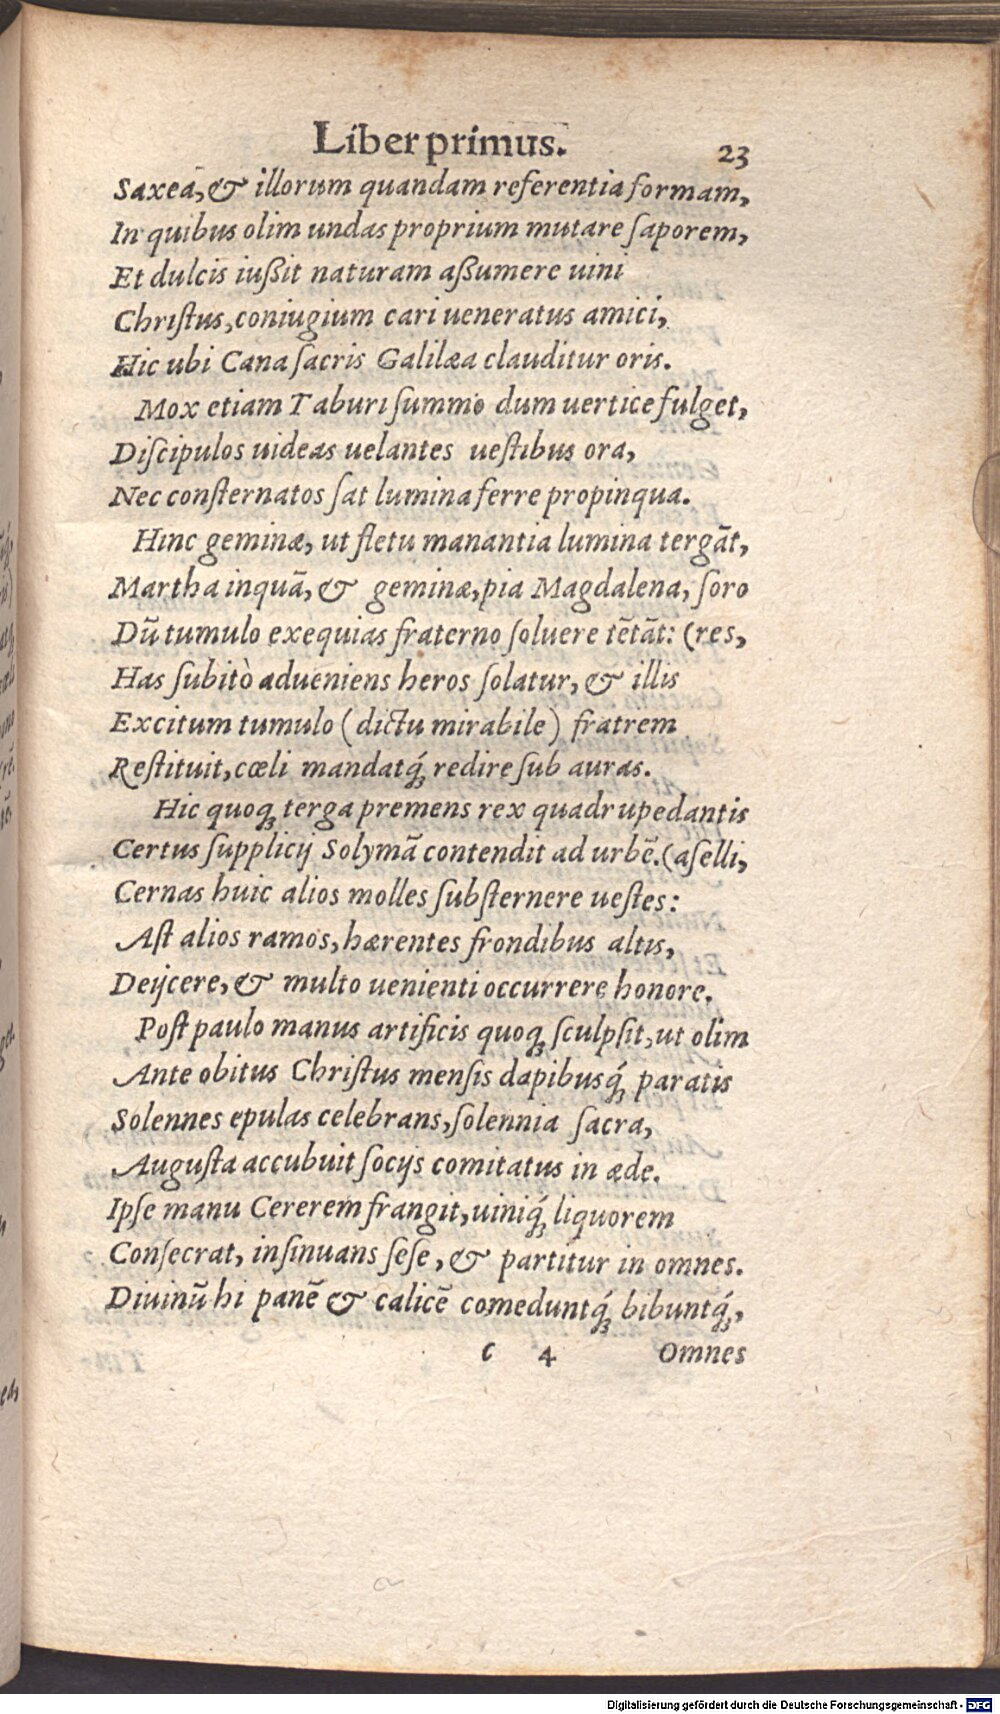 Liber primus. 23
Saxeā, & illorum quandam referentia formam,
In quibus olim undas proprium mutare ſaporem,
Et dulcis iußit naturam aßumere uini
Chriſtus, coniugium cari ueneratus amici,
Hic ubi Cana ſacris Galilæa clauditur oris.
Mox etiam Taburi ſummo dum uertice fulget,
Diſcipulos uideas uelantes ueſtibus ora,
Nec conſternatos ſat lumina ferre propinqua.
Hinc geminæ, ut fletu manantia lumina tergāt,
Martha inquā, & geminæ, pia Magdalena, ſoro
Dū tumulo exequias fraterno ſoluere tētāt: (res,
Has ſubitò adueniens heros ſolatur, & illis
Excitum tumulo (dictu mirabile) fratrem
Reſtituit, cœli mandatq́; redire ſub auras.
Hic quoq; terga premens rex quadrupedantis
Certus ſupplicij Solymā contendit ad urbē. (aſelli,
Cernas huic alios molles ſubſternere ueſtes:
Aſt alios ramos, hærentes frondibus altis,
Deijcere, & multo uenienti occurrere honore.
Poſt paulo manus artificis quoq; ſculpſit, ut olim
Ante obitus Chriſtus menſis dapibusq́; paratis
Solennes epulas celebrans, ſolennia ſacra,
Auguſta accubuit ſocijs comitatus in æde.
Ipſe manu Cererem frangit, uiniq́; liquorem
Conſecrat, inſinuans ſeſe, & partitur in omnes.
Diuinū hi panē & calicē comeduntq́; bibuntq́;,
c 4 Omnes
Digitalisierung gefördert durch die Deutsche Forschungsgemeinschaft - DFG